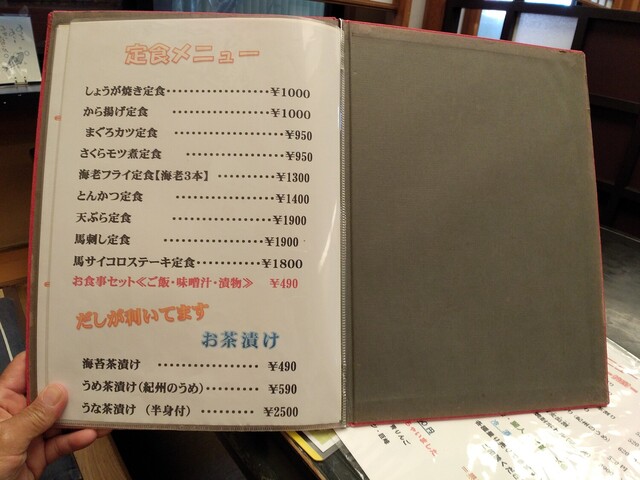 定食メニュー
しょうが焼き定食・・・・・・・・・・・・・・・・・・¥1000
から揚げ定食 ・・・・・・・・・・・・・・・・・・¥1000
まぐろカツ定食 ・・・・・・・・・・・・・・・・・・¥950
さくらモツ煮定食 ・・・・・・・・・・・・・・・・¥950
海老フライ定食【海老3本】 ・・・・・・・・・・¥1300
とんかつ定食 ・・・・・・・・・・・・・・・・¥1400
天ぷら定食 ・・・・・・・・・・・・・・・・¥1900
馬刺し定食 ・・・・・・・・・・・・・・・・¥1900
馬サイコロステーキ定食・・・・・・・・・・¥1800
お食事セット≪ご飯・味噌汁・漬物≫ ¥490
だしが利いてます
お茶漬け
海苔茶漬け ・・・・・・・・・・・・・・・・ ¥490
うめ茶漬け(紀州のうめ)・・・・・・・・ ¥590
うな茶漬け (半身付) ・・・・・・・・・ ¥2500